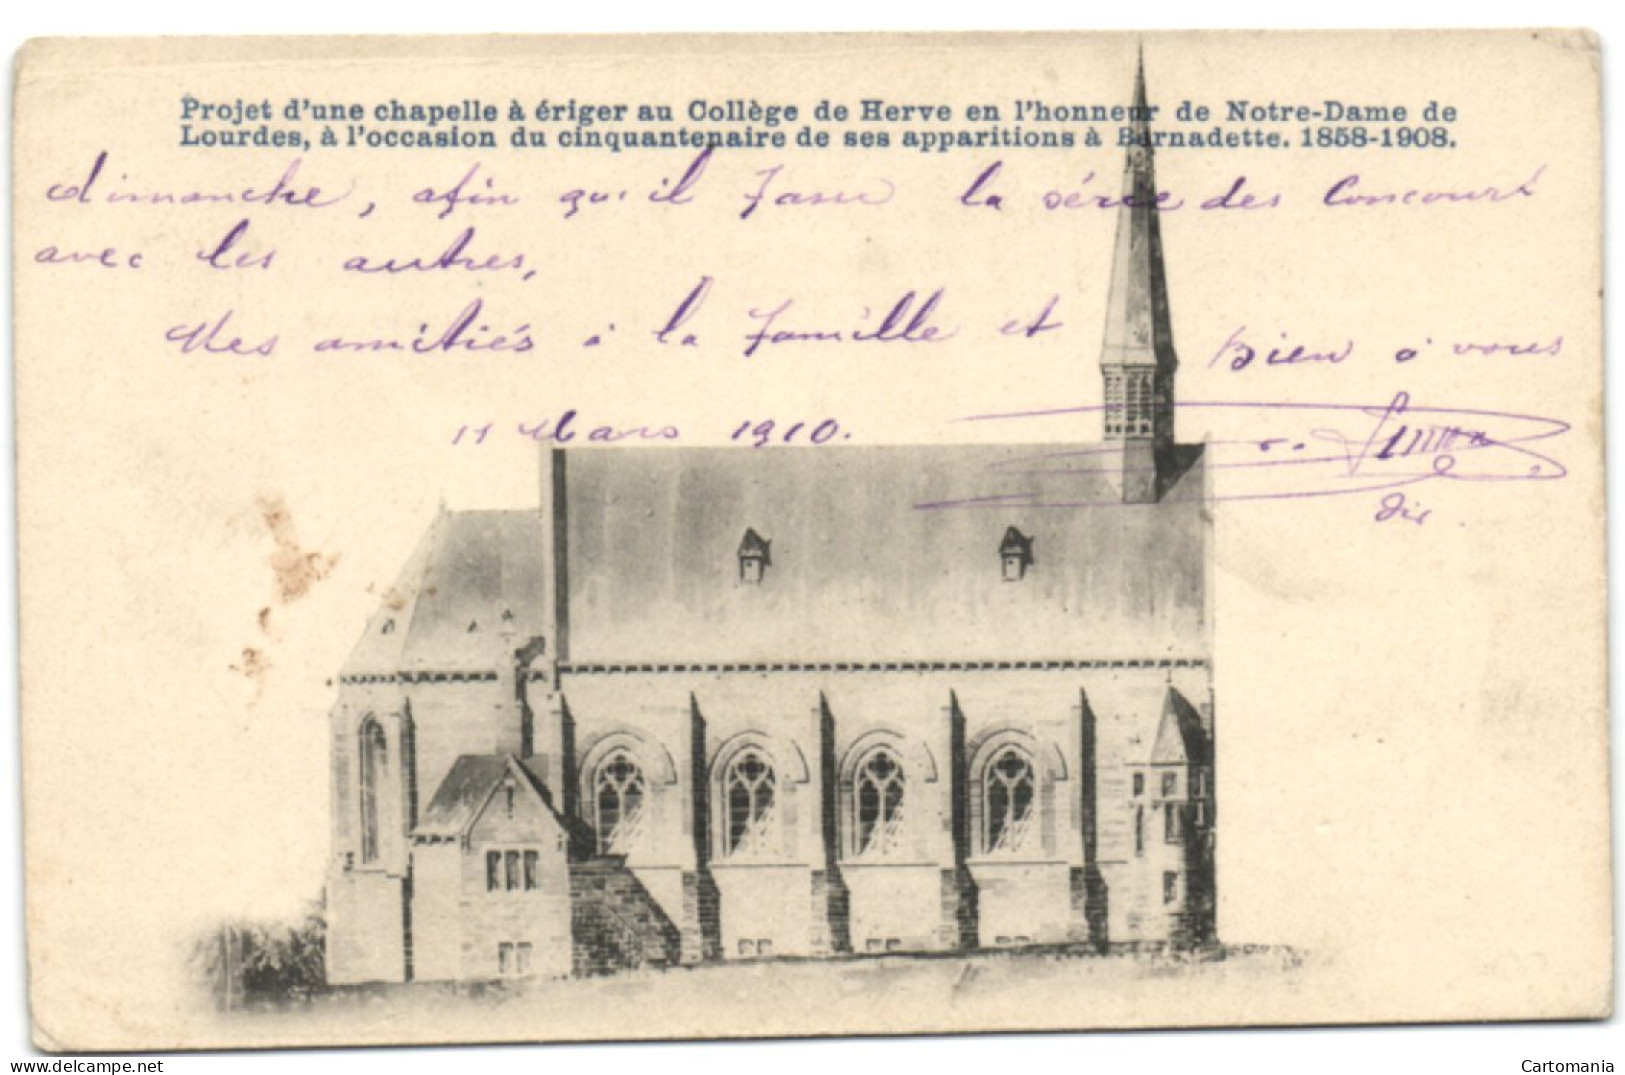 Projet d'une chapelle à ériger au Collège de Herve en l'honneur de Notre-Dame de
Lourdes, à l'occasion du cinquantenaire de ses apparitions à Bernadette. 1858-1908.
dimanche, afin qu'il fasse la série des Concours
avec les autres,
Mes amitiés à la famille et bien à vous
11 Mars 1910.
dir.
www.delcampe.net
Cartomania